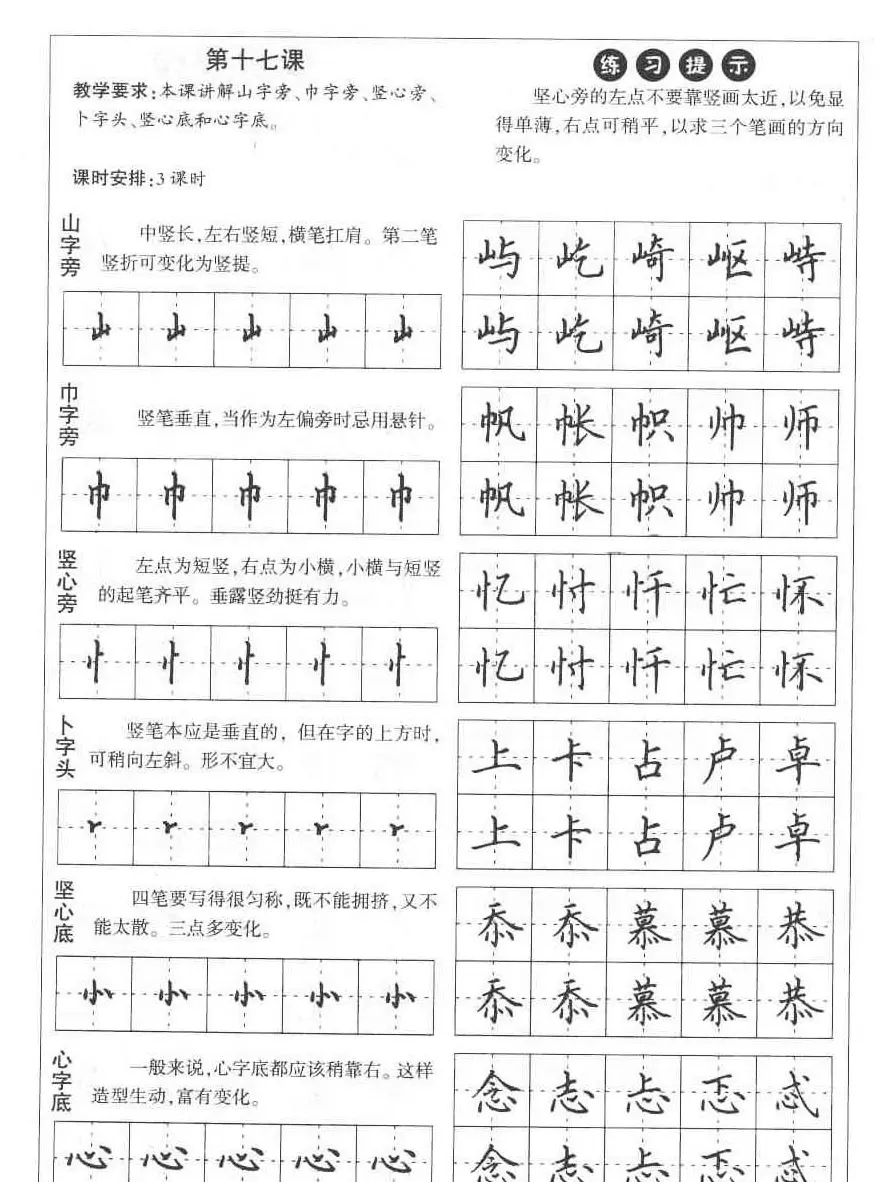 第十七课
教学要求:本课讲解山字旁、巾字旁、竖心旁、
卜字头、竖心底和心字底。
课时安排:3课时
练习提示
坚心旁的左点不要靠竖画太近,以免显
得单薄,右点可稍平,以求三个笔画的方向
变化。
山字旁
中竖长,左右竖短,横笔扛肩。第二笔
竖折可变化为竖提。
山 山 山 山 山
屿 屹 崎 岖 峙
屿 屹 崎 岖 峙
巾字旁
竖笔垂直,当作为左偏旁时忌用悬针。
巾 巾 巾 巾 巾
帆 帐 帜 帅 师
帆 帐 帜 帅 师
竖心旁
左点为短竖,右点为小横,小横与短竖
的起笔齐平。垂露竖劲挺有力。
忄 忄 忄 忄 忄
忆 忖 忏 忙 怀
忆 忖 忏 忙 怀
卜字头
竖笔本应是垂直的,但在字的上方时,
可稍向左斜。形不宜大。
⺊ ⺊ ⺊ ⺊ ⺊
上 卡 占 卢 卓
上 卡 占 卢 卓
坚心底
四笔要写得很匀称,既不能拥挤,又不
能太散。三点多变化。
⺗ ⺗ ⺗ ⺗ ⺗
忝 忝 慕 慕 恭
忝 忝 慕 慕 恭
心字底
一般来说,心字底都应该稍靠右。这样
造型生动,富有变化。
心 心 心 心 心
念 志 忐 忑 忒
念 志 忐 忑 忒